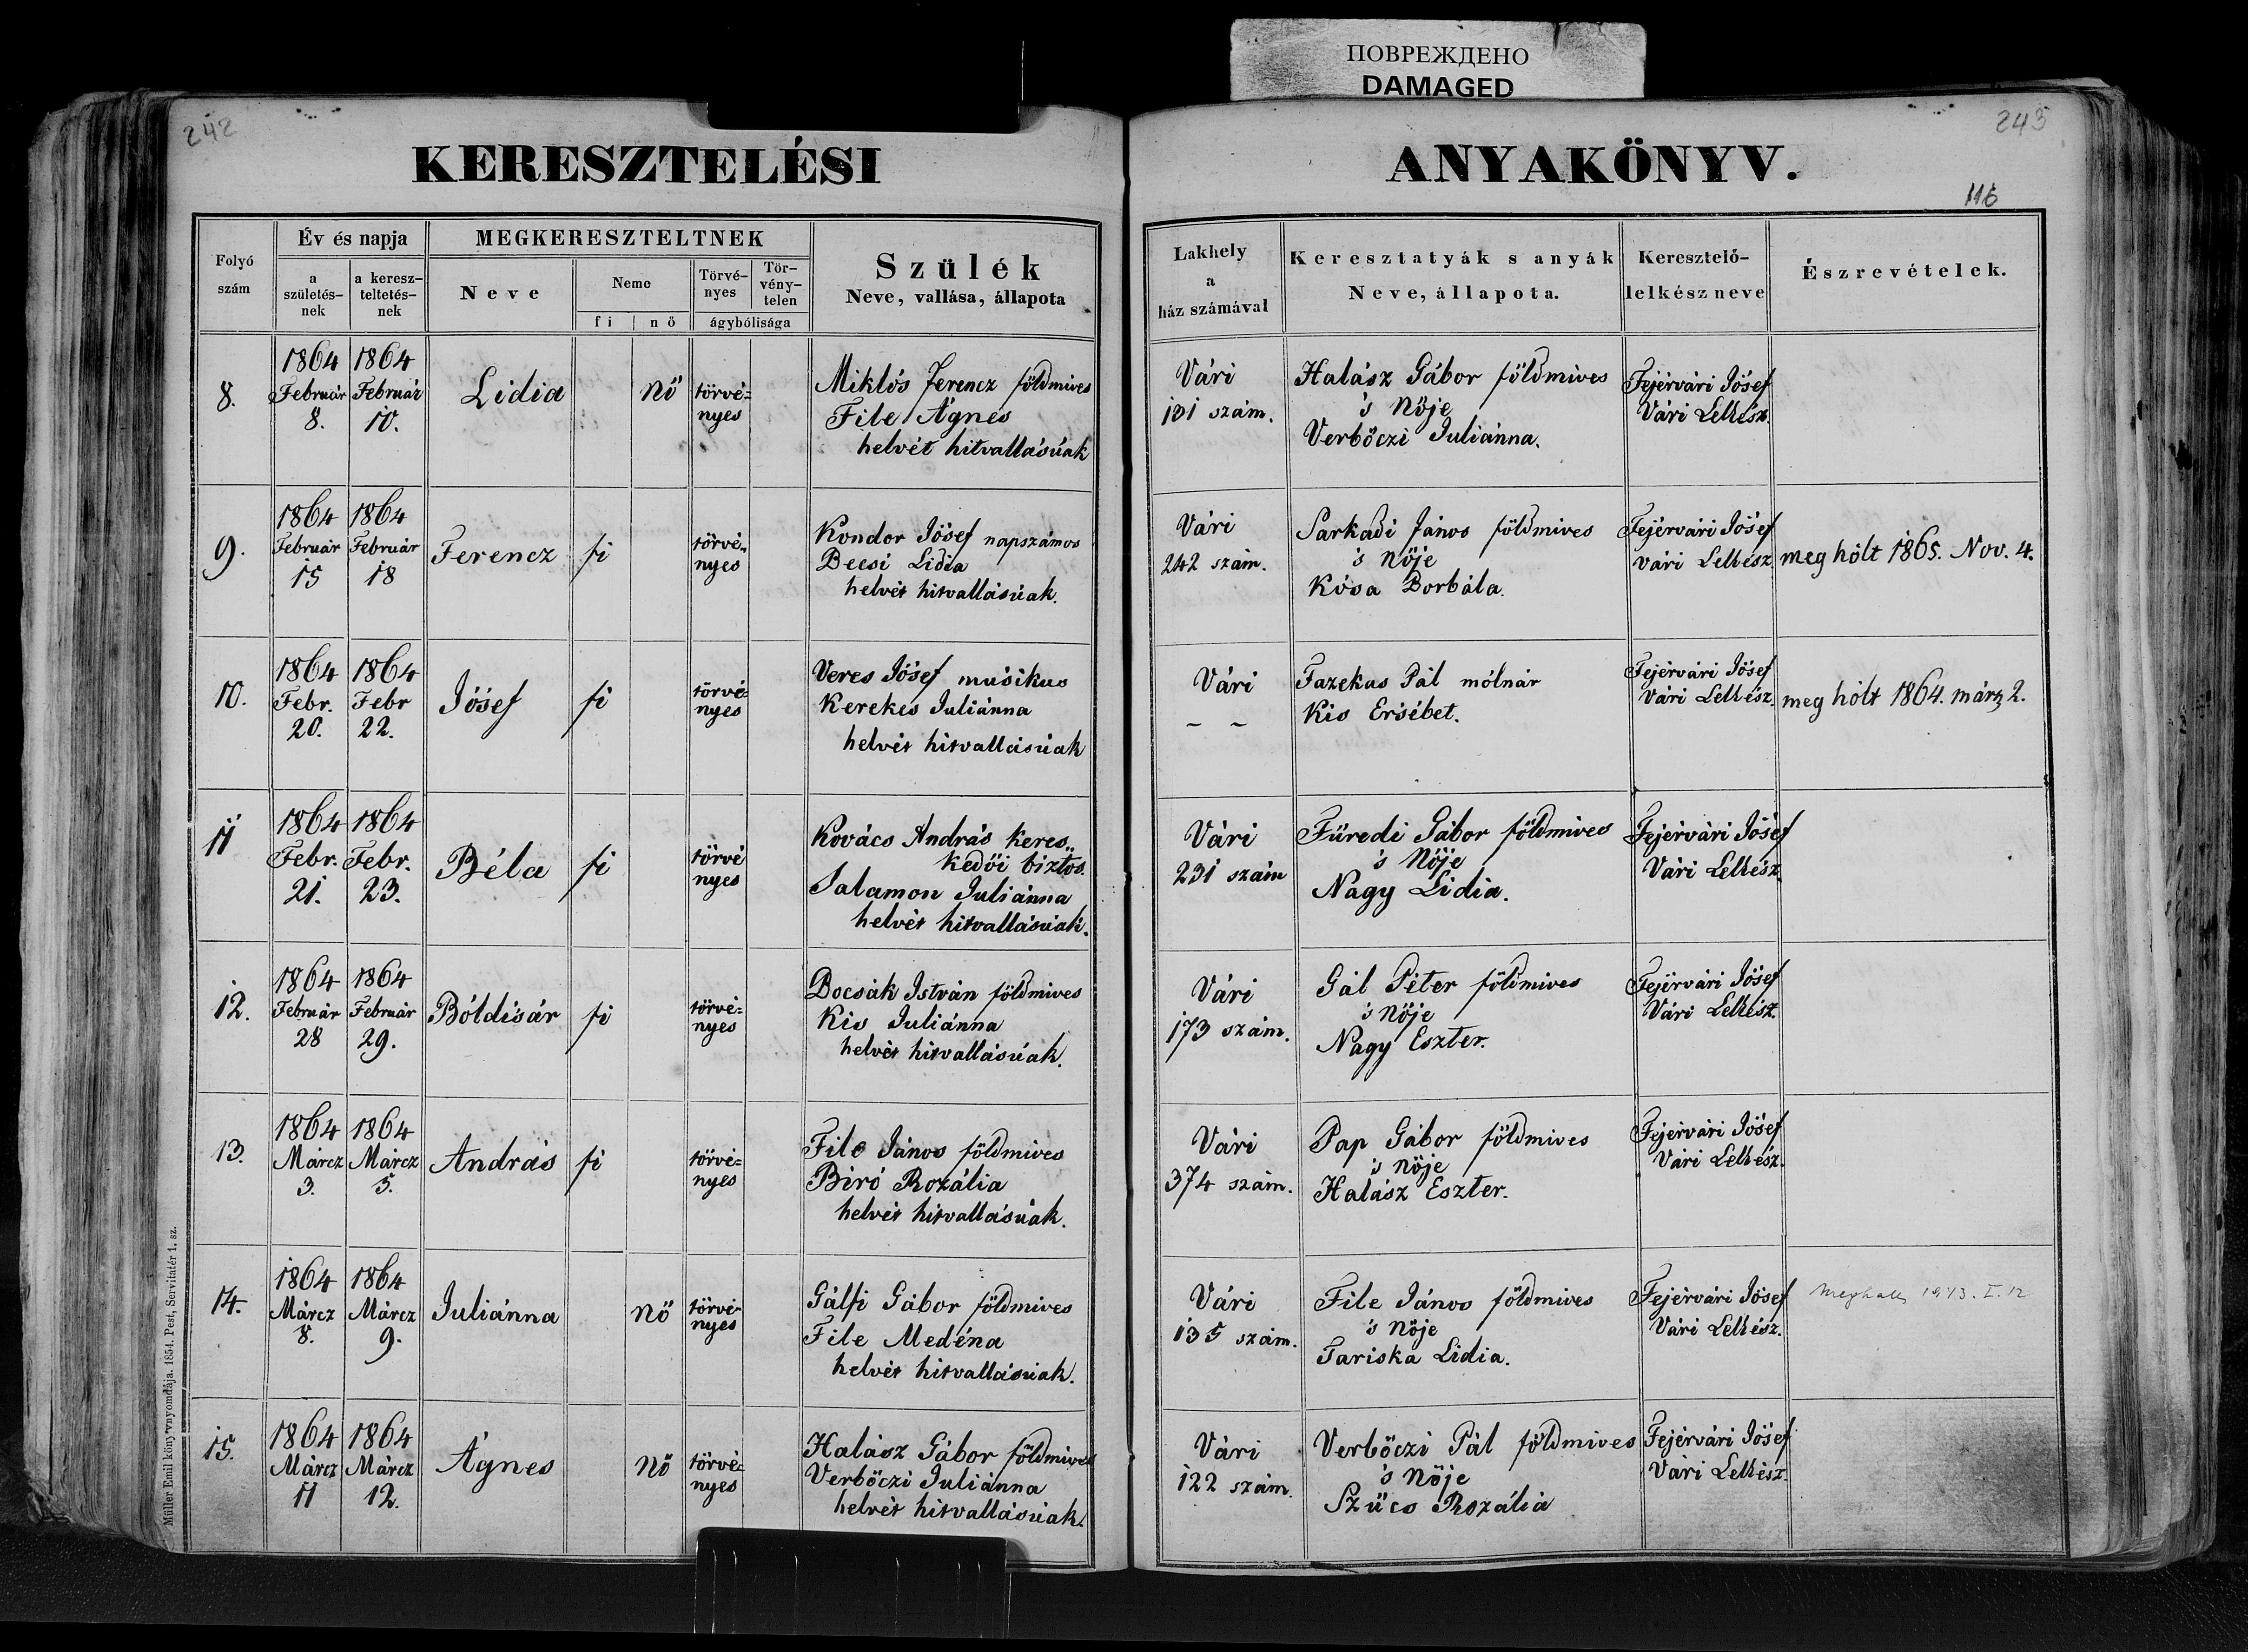 ПОВРЕЖДЕНО
DAMAGED
242
243
KERESZTELÉSI
ANYAKÖNYV.
116
Folyó szám
Év és napja
a születés-nek
a keresz-teltetés-nek
MEGKERESZTELTNEK
Neve
Neme
fi
nö
Törvé-nyes
Tör-vény-telen
ágybólisága
Szülék
Neve, vallása, állapota
Lakhely a ház számával
Keresztatyák s anyák
Neve, állapota.
Keresztelő-lelkész neve
Észrevételek.
8.
1864 Február 8.
1864 Február 10.
Lidia
Nő
törvé=nyes
Miklós Ferencz földmives
File Ágnes
helvét hitvallásúak
Vári
131 szám.
Halász Gábor földmives
's Nője
Verbőczi Juliánna.
Fejérvári Jósef
Vári Lelkész.
9.
1864 Február 15
1864 Február 18
Ferencz
fi
törvé=nyes
Kondor Jósef napszámos
Becsi Lidia
helvét hitvallásúak.
Vári
242 szám.
Sarkadi János földmives
's Nője
Kósa Borbála.
Fejérvári Jósef
Vári Lelkész
meg hólt 1865. Nov. 4.
10.
1864 Febr. 20.
1864 Febr 22.
Jósef
fi
törvé=nyes
Veres Jósef músikus
Kerekes Juliánna
helvét hitvallásúak
Vári
– –
Fazekas Pál mólnár
Kis Ersébet.
Fejérvári Jósef
Vári Lelkész.
meg hólt 1864. márz 2.
11
1864 Febr. 21.
1864 Febr. 23.
Béla
fi
törvé nyes
Kovács András keres=
kedői biztos.
Salamon Juliánna
helvét hitvallásúak.
Vári
231 szám
Füredi Gábor földmives
's Nője
Nagy Lidia.
Fejérvári Jósef
Vári Lelkész.
12.
1864 Február 28
1864 Február 29.
Bóldisár
fi
törvé=nyes
Bocsák István földmives
Kis Juliánna
helvét hitvallásúak.
Vári
173 szám.
Gál Péter földmives
's Nője
Nagy Eszter.
Fejérvári Jósef
Vári Lelkész.
13.
1864 Márcz 3.
1864 Márcz 5.
András
fi
törvé=nyes
File János földmives
Biró Rozália
helvét hitvallásúak.
Vári
374 szám.
Pap Gábor földmives
's nője
Halász Eszter.
Fejérvári Jósef
Vári Lelkész.
14.
1864 Márcz 8.
1864 Márcz 9.
Juliánna
Nő
törvé=nyes
Gálfi Gábor földmives
File Medéna
helvét hitvallásúak.
Vári
135 szám.
File János földmives
's Nője
Tariska Lidia.
Fejérvári Jósef
Vári Lelkész.
1943. I. 12
15.
1864 Márcz 11
1864 Márcz 12.
Ágnes
Nő
törvé=nyes
Halász Gábor földmives
Verbőczi Juliánna
helvét hitvallásúak.
Vári
122 szám.
Verbőczi Pál földmives
's Nője
Szücs Rozália
Fejérvári Jósef
Vári Lelkész.
Müller Emil könyvnyomdája. 1854. Pest, Servitatér 1. sz.